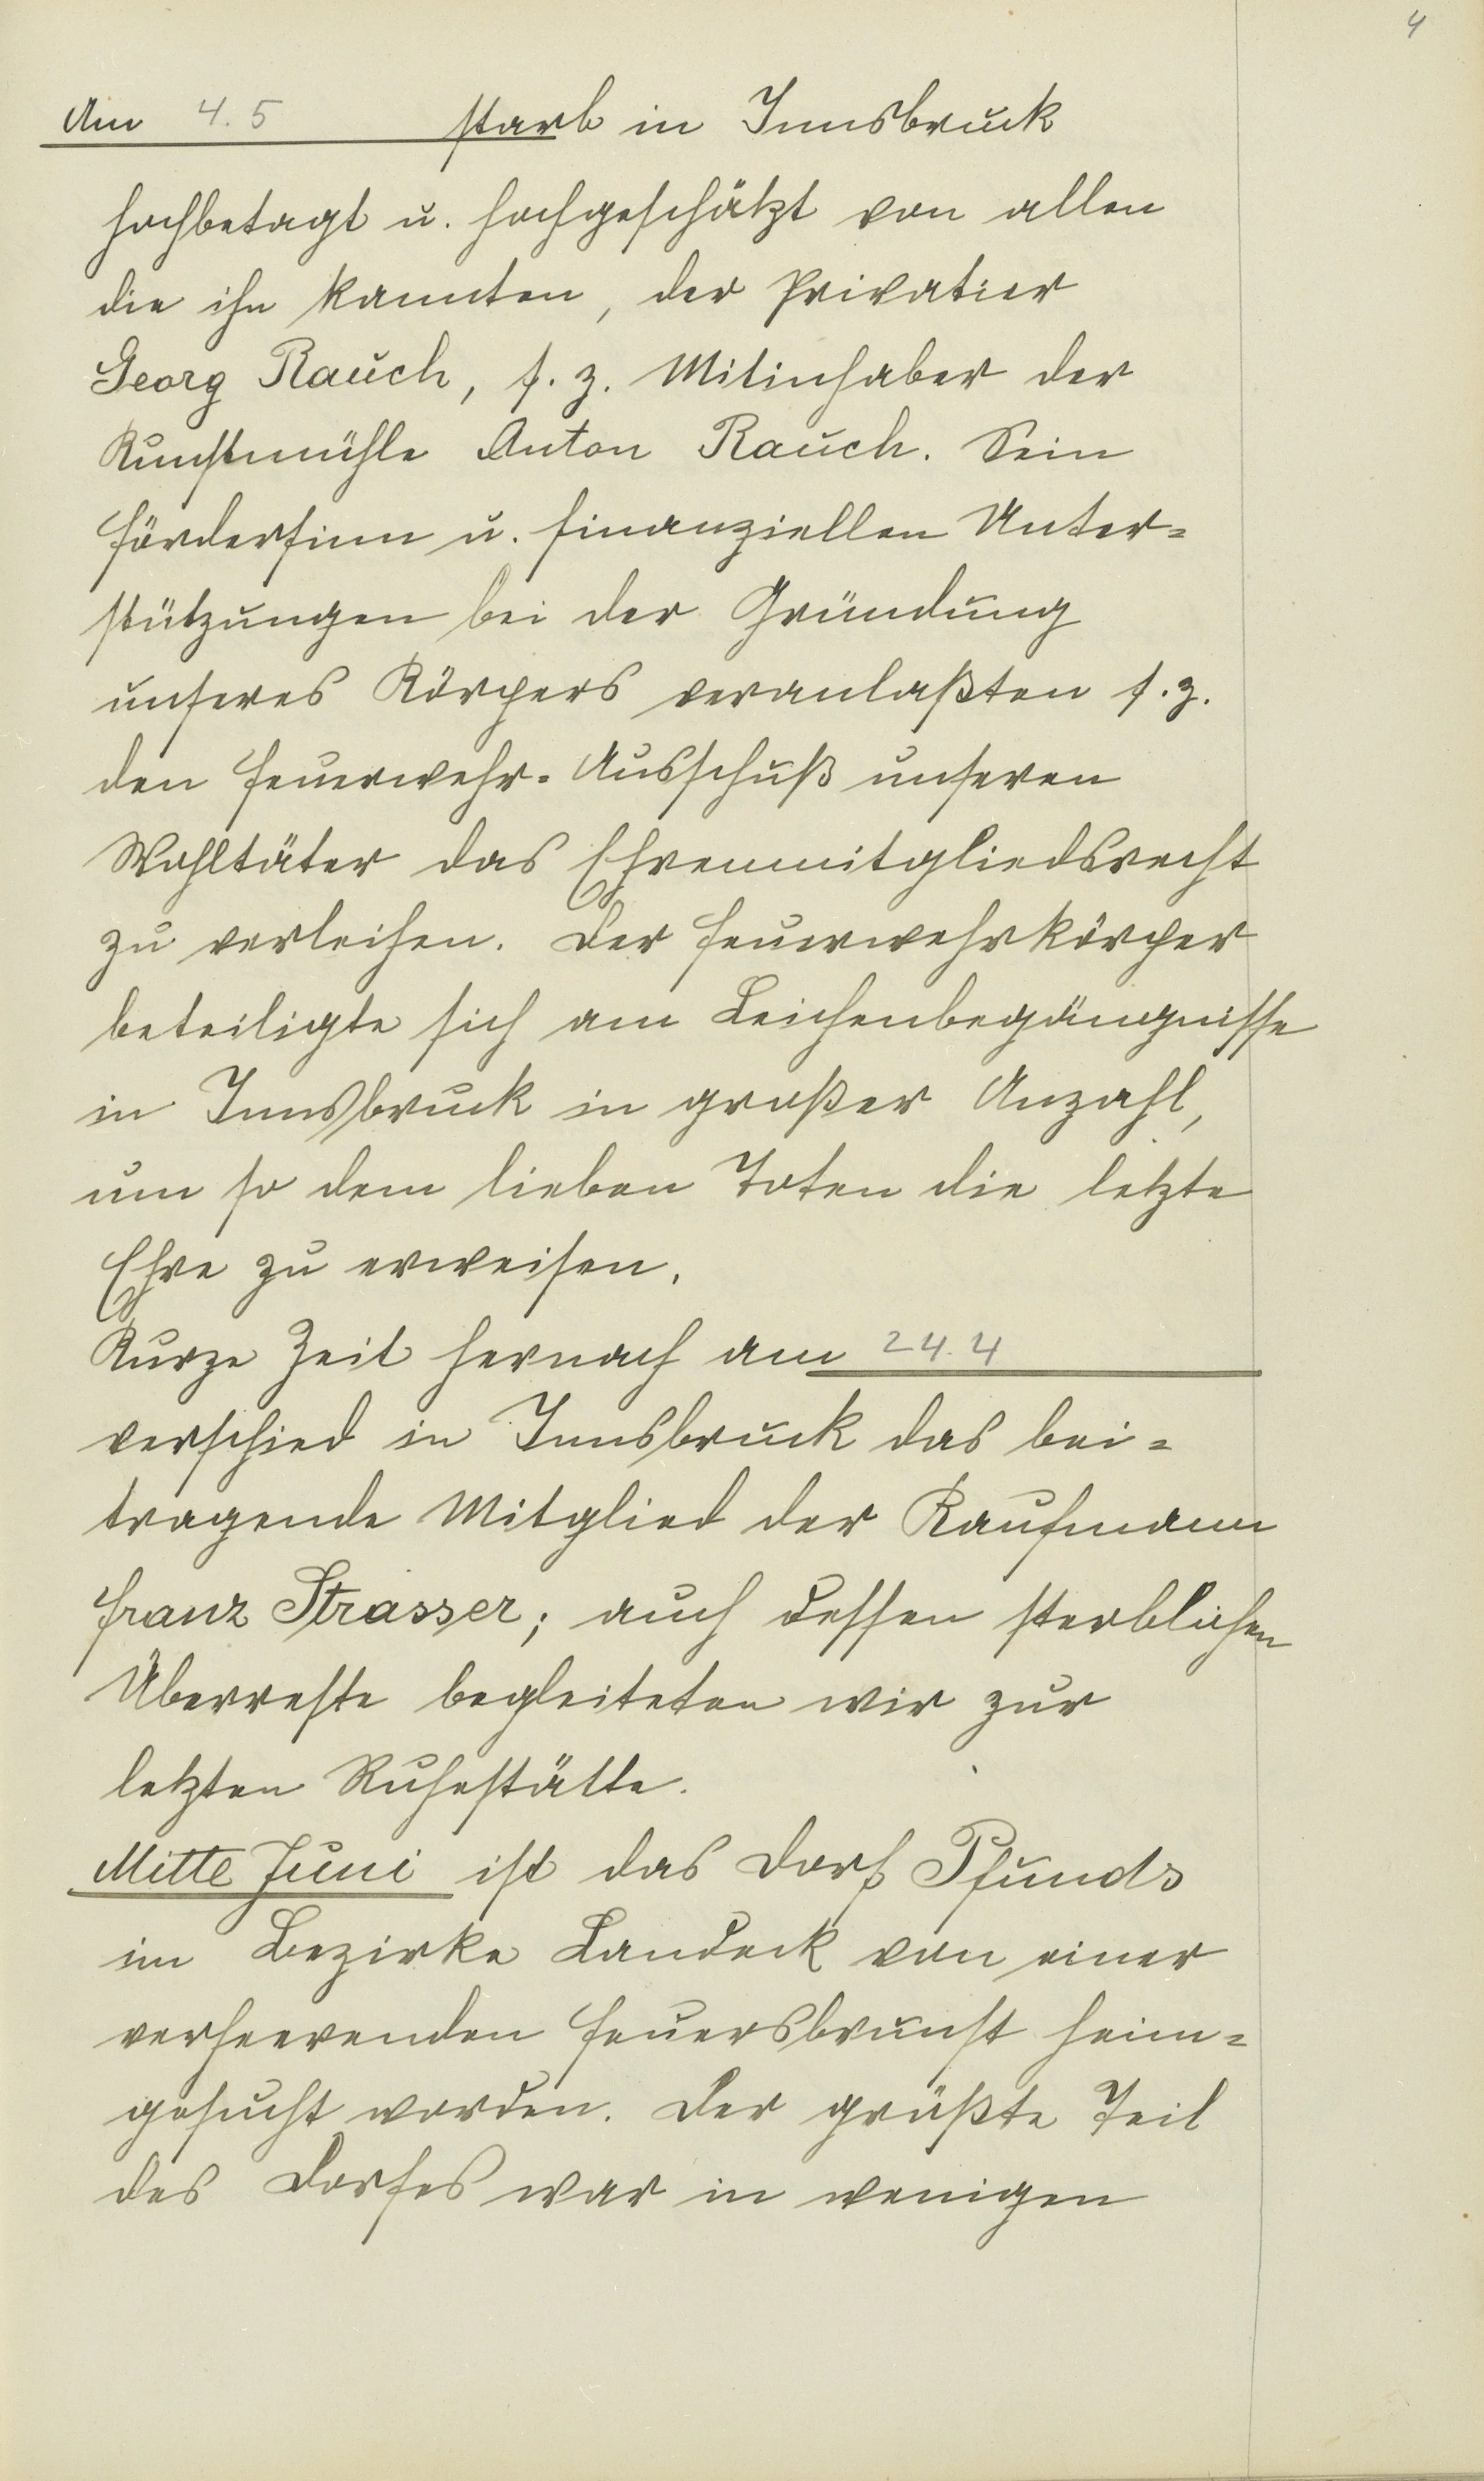 4
Am 4.5 starb in Innsbruck
hochbetagt u. hochgeschätzt von allen
die ihn kannten, der Privatier
Georg Rauch, s. z. Mitinhaber der
Kunstmühle Anton Rauch. Sein
Fördersinn u. finanziellen Unter-
stützungen bei der Gründung
unseres Körpers veranlaßten s. z.
den Feuerwehr-Ausschuß unseren
Wohltäter das Ehrenmitgliedsrecht
zu verleihen. Der Feuerwehrkörper
beteiligte sich am Leichenbegängnisse
in Innsbruck in großer Anzahl,
um so dem lieben Toten die letzte
Ehre zu erweisen.
Kurze Zeit hernach am 24.4
verschied in Innsbruck das bei-
tragende Mitglied der Kaufmann
Franz Strasser; auch dessen sterblichen
Überreste begleiteten wir zur
letzten Ruhestätte.
Mitte Juni ist das Dorf Pfunds
im Bezirke Landeck von einer
verheerenden Feuersbrunst heim-
gesucht worden. Der größte Teil
des Dorfes war in wenigen